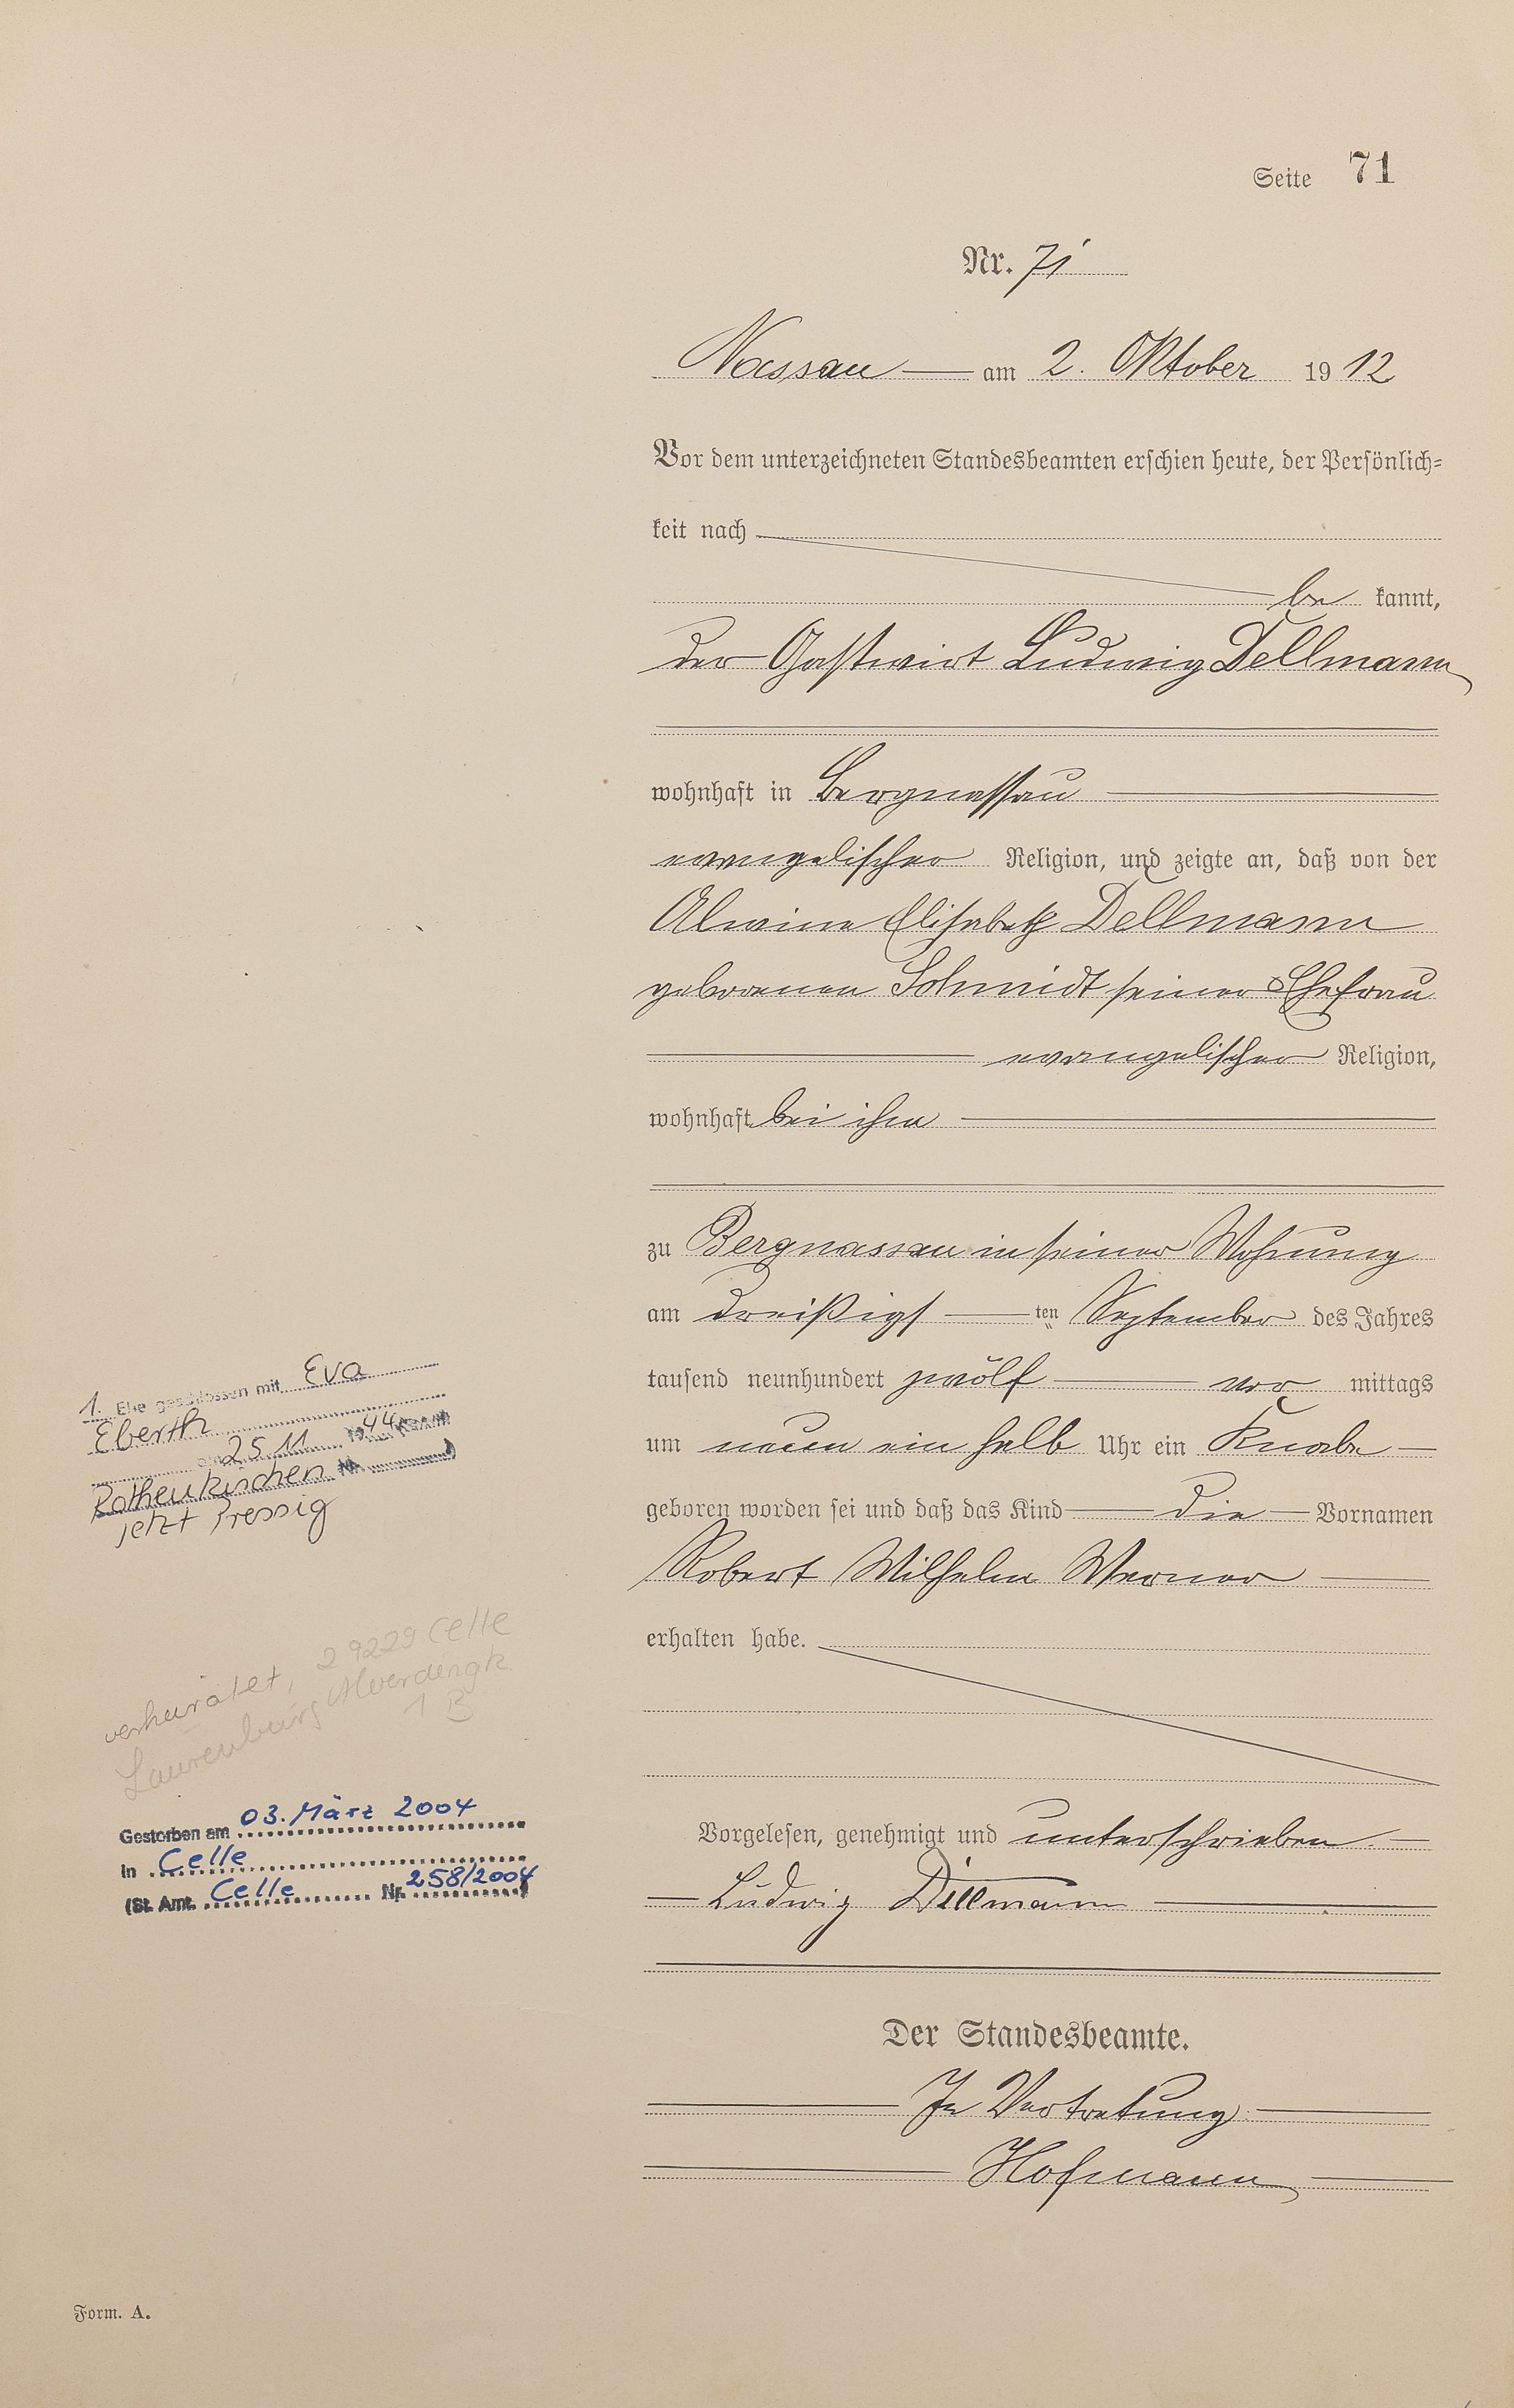 Seite 71
Nr. 71
Nassau am 2. Oktober 1912
Vor dem unterzeichneten Standesbeamten erschien heute, der Persönlich-
keit nach
be kannt,
der Gastwirt Ludwig Dellmann
wohnhaft in Bergnassau
evangelischer Religion, und zeigte an, daß von der
Alwine Elisabeth Dellmann
geborenen Schmidt seiner Ehefrau
evangelischer Religion,
wohnhaft bei ihm
zu Bergnassau in seiner Wohnung
am dreißigs ten September des Jahres
tausend neunhundert zwölf vor mittags
um neun ein halb Uhr ein Knabe
geboren worden sei und daß das Kind die Vornamen
Robert Wilhelm Werner
erhalten habe.
Vorgelesen, genehmigt und unterschrieben
Ludwig Dellmann
Der Standesbeamte.
In Vertretung
Hofmann
1. Ehe geschlossen mit Eva
Eberth
am 25.11. 1944
Rothenkirchen Nr.
jetzt Pressig
verheiratet, 29229 Celle
1 B
Gestorben am 03. März 2004
in Celle
(St. Amt. Celle Nr. 258/2004)
Form. A.